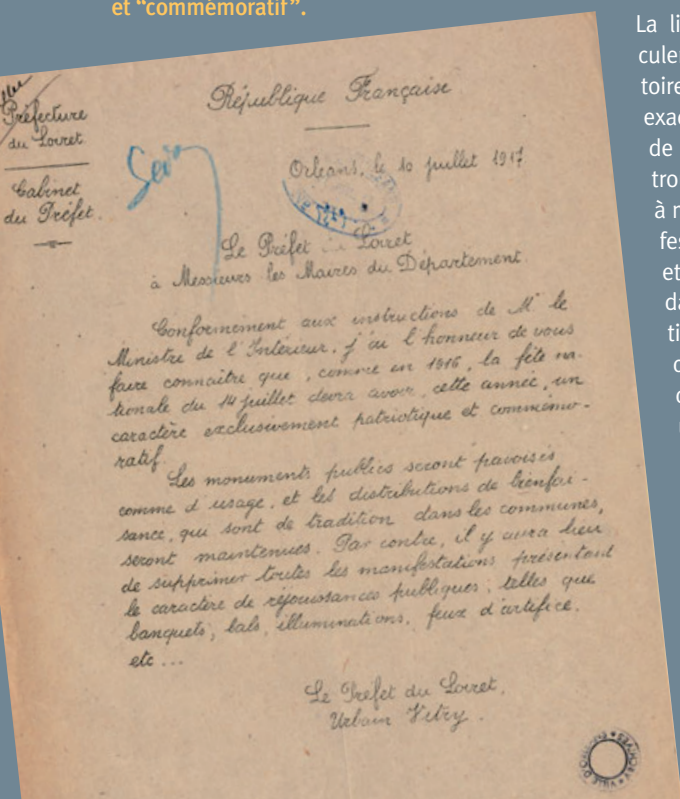 et “commémoratif”.
Préfecture
du Loiret
Cabinet
du Préfet.
République Française
Orléans, le 10 juillet 1917
Le Préfet du Loiret
à Messieurs les Maires du Département.
Conformément aux instructions de Mr le
Ministre de l'Intérieur, j'ai l'honneur de vous
faire connaître que, comme en 1916, la fête na-
tionale du 14 juillet devra avoir, cette année, un
caractère exclusivement patriotique et commémo-
ratif.
Les monuments publics seront pavoisés
comme d'usage, et les distributions de bienfai-
sance, qui sont de tradition dans les communes,
seront maintenues. Par contre, il y aura lieu
de supprimer toutes les manifestations présentant
le caractère de réjouissances publiques, telles que
banquets, bals, illuminations, feux d'artifice,
etc...
Le Préfet du Loiret,
Urbain Vitry.
La li
culer
toire
exac
de
tro
à n
fes
et
da
ti